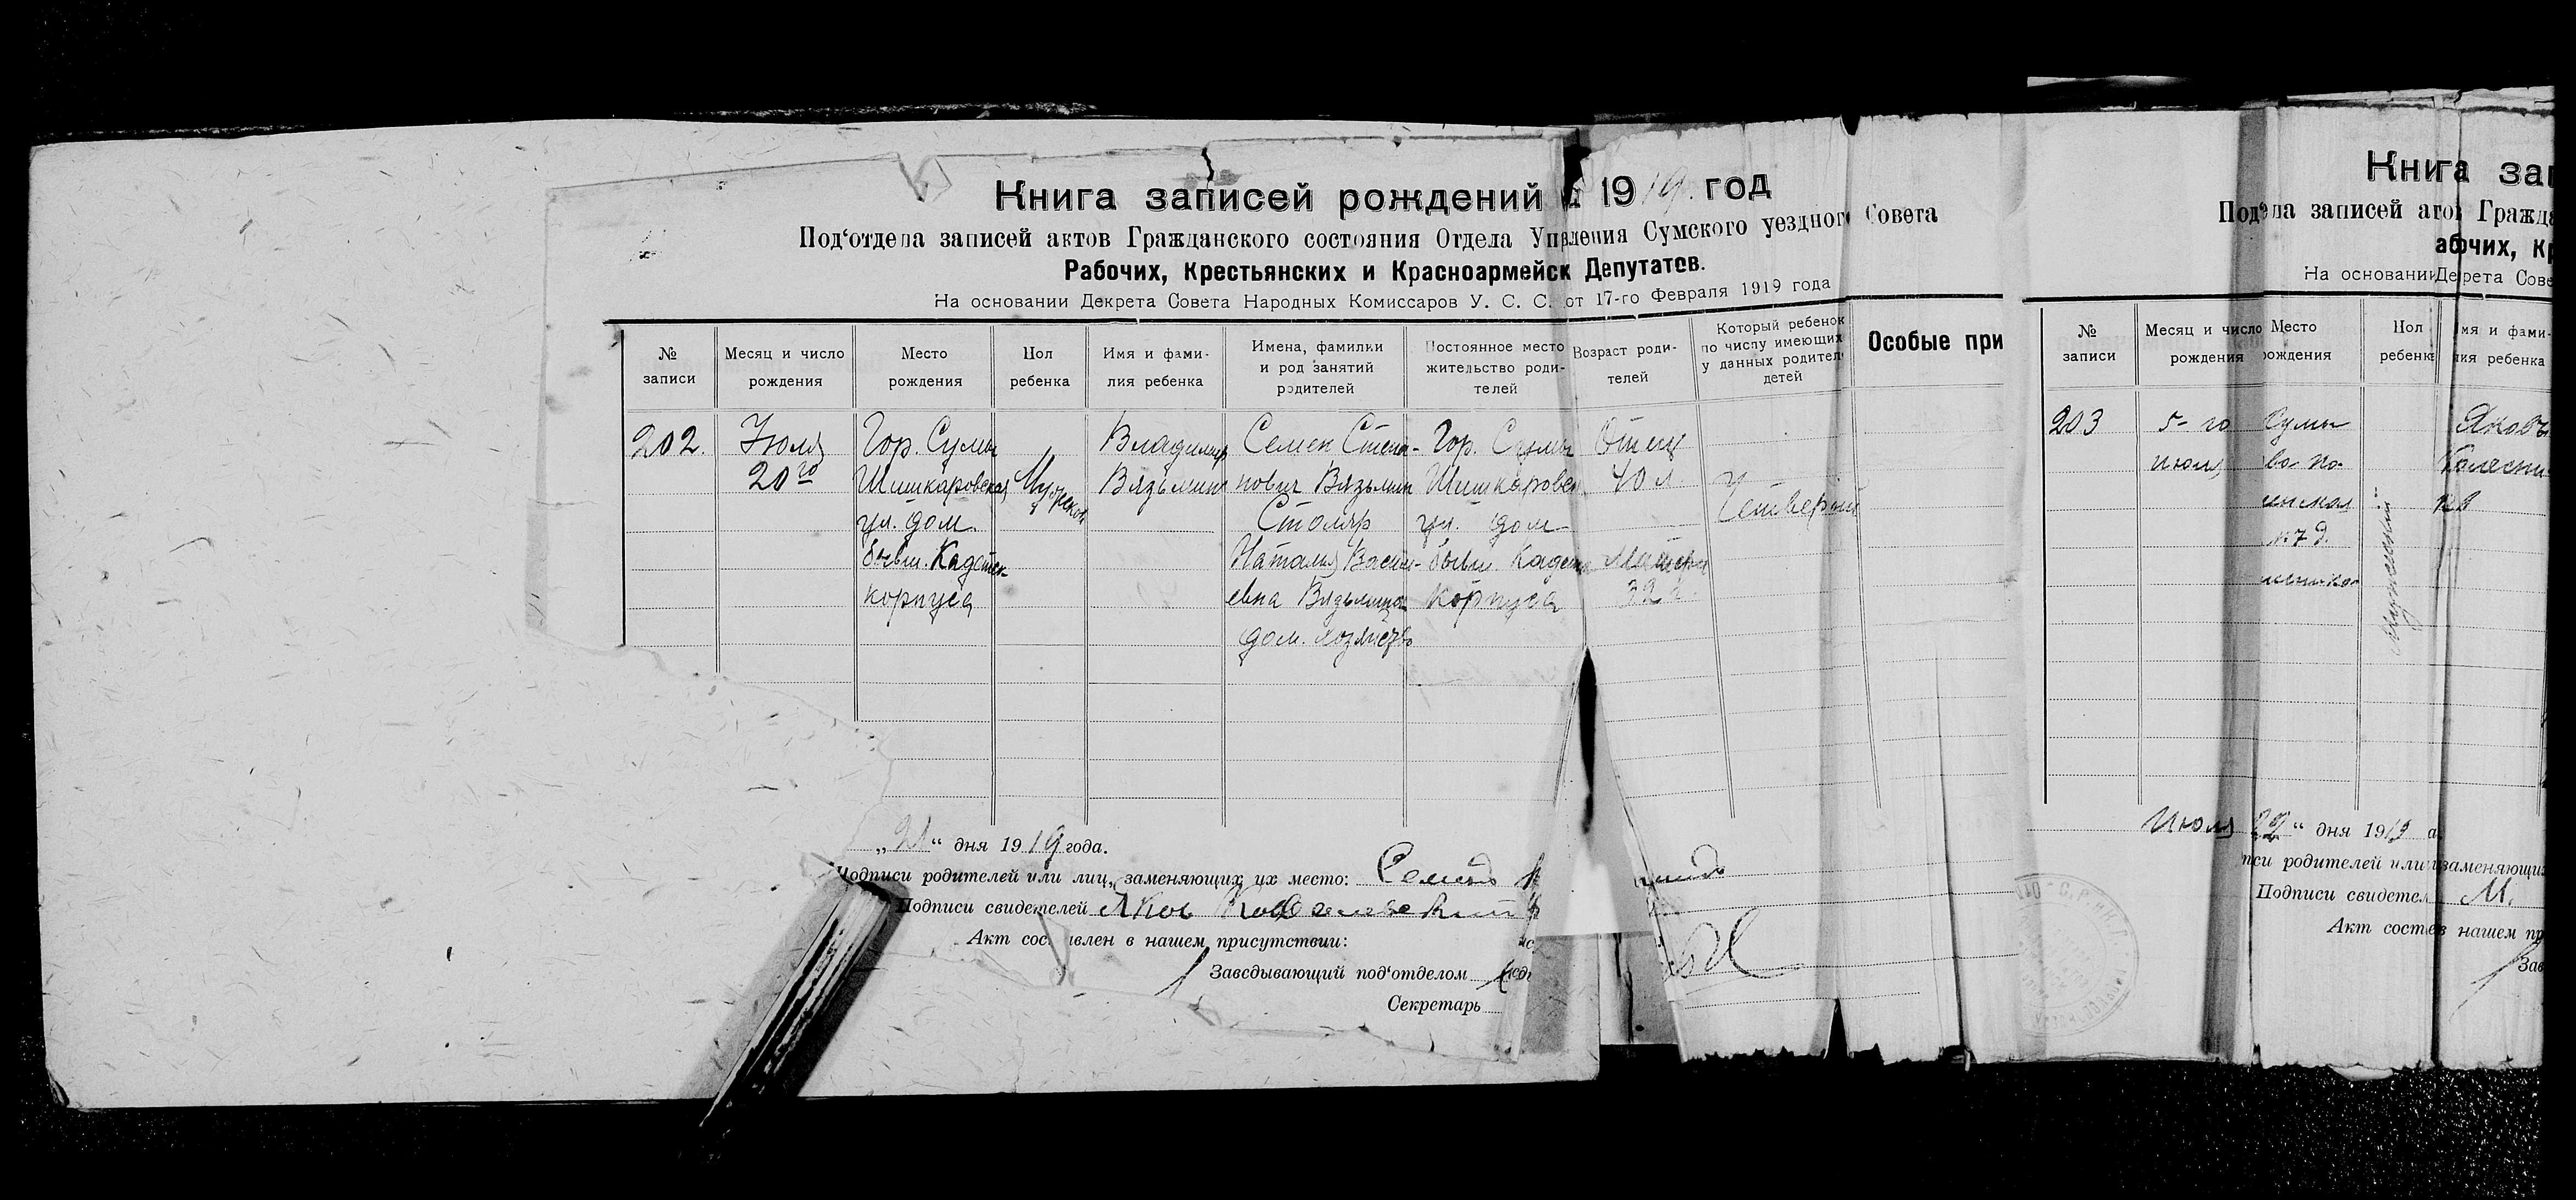 Книга записей рождений 1919. год
Под‘отдела записей актов Гражданского состояния Отдела Упвления Сумского уездног Совета
Рабочих, Крестьянских и Красноармейск Депутатов.
На основании Декрета Совета Народных Комиссаров У. С. С. от 17-го Февраля 1919 года
№ записи
Месяц и число рождения
Место рождения
Пол ребенка
Имя и фами-
лия ребенка
Имена, фамилии
и род занятий
родителей
Постоянное место
жительство роди-
телей
Возраст роди-
телей
Который ребенок
по числу имеющих
у данных родител
детей
Особые при
202.
Июля
20го
Гор. Сумы
Шишкаровская
ул. дом.
бывш. Кадетск
корпуса
Мужеской
Владимир
Вязьмин
Семен Степа-
нович Вязьмин
Столяр
Наталия Васил-
евна Вязьмина
дом. хозяйство
Гор. Сумы
Шишкаровск
ул. дом
бывш Кадетск
Корпуса
Отец
40 л.
Матери
32
Четверый
„21“ дня 1919 года.
Подписи родителей или лиц, заменяющих их место: Семен
Подписи свидетелей Яков
Акт сос влен в нашем присутствии:
Заведывающий под‘отделом
Секретарь
Книга зап
Под‘ ла записей атов Гражда
абочих, Кр
На основании Декрета Сове
№ записи
Месяц и число рождения
Место рождения
Пол ребенк
мя и фами-
лия ребенка
203
5-го
июля
Сумы
№7 д.
Мужеский
Яковъ
Колесни
ков
Июля 22“ дня 1919 а.
пси родителей или заменяющих
Подписи свидетел М.
Акт состав нашем пр
Зав